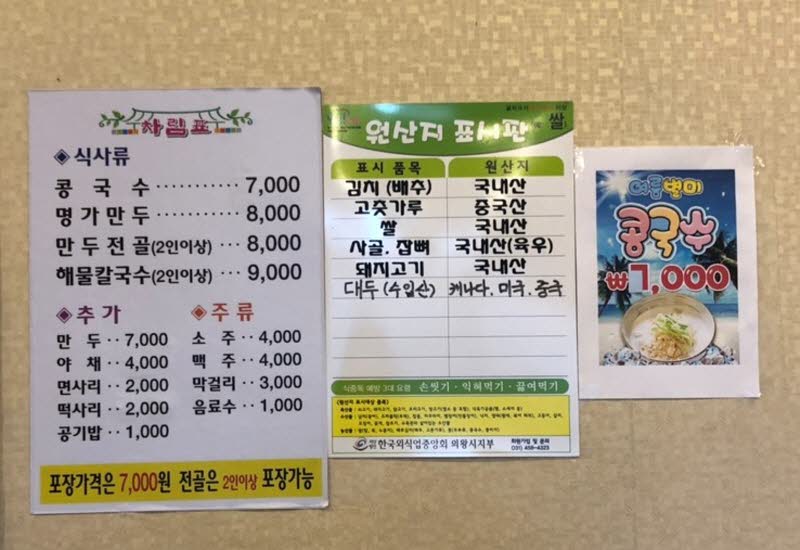 차림표
◈식사류
콩국수 ············ 7,000
명가만두 ········· 8,000
만두전골(2인이상) ·· 8,000
해물칼국수(2인이상) ·· 9,000
◈추가
만두 ·· 7,000
야채 ·· 4,000
면사리 ·· 2,000
떡사리 ·· 2,000
공기밥 ·· 1,000
◈주류
소주 ·· 4,000
맥주 ·· 4,000
막걸리 ·· 3,000
음료수 ·· 1,000
포장가격은 7,000원 전골은 2인이상 포장가능
원산지 표시판 쌀
표시 품목 원산지
김치 (배추) 국내산
고춧가루 중국산
쌀 국내산
사골. 잡뼈 국내산(육우)
돼지고기 국내산
대두 (수입산) 캐나다. 미국. 중국
식중독 예방 3대 요령 손씻기 · 익혀먹기 · 끓여먹기
(원산지 표시대상 품목)
한국외식업중앙회 의왕시지부
회원가입 및 문의
여름별미
콩국수
₩7,000